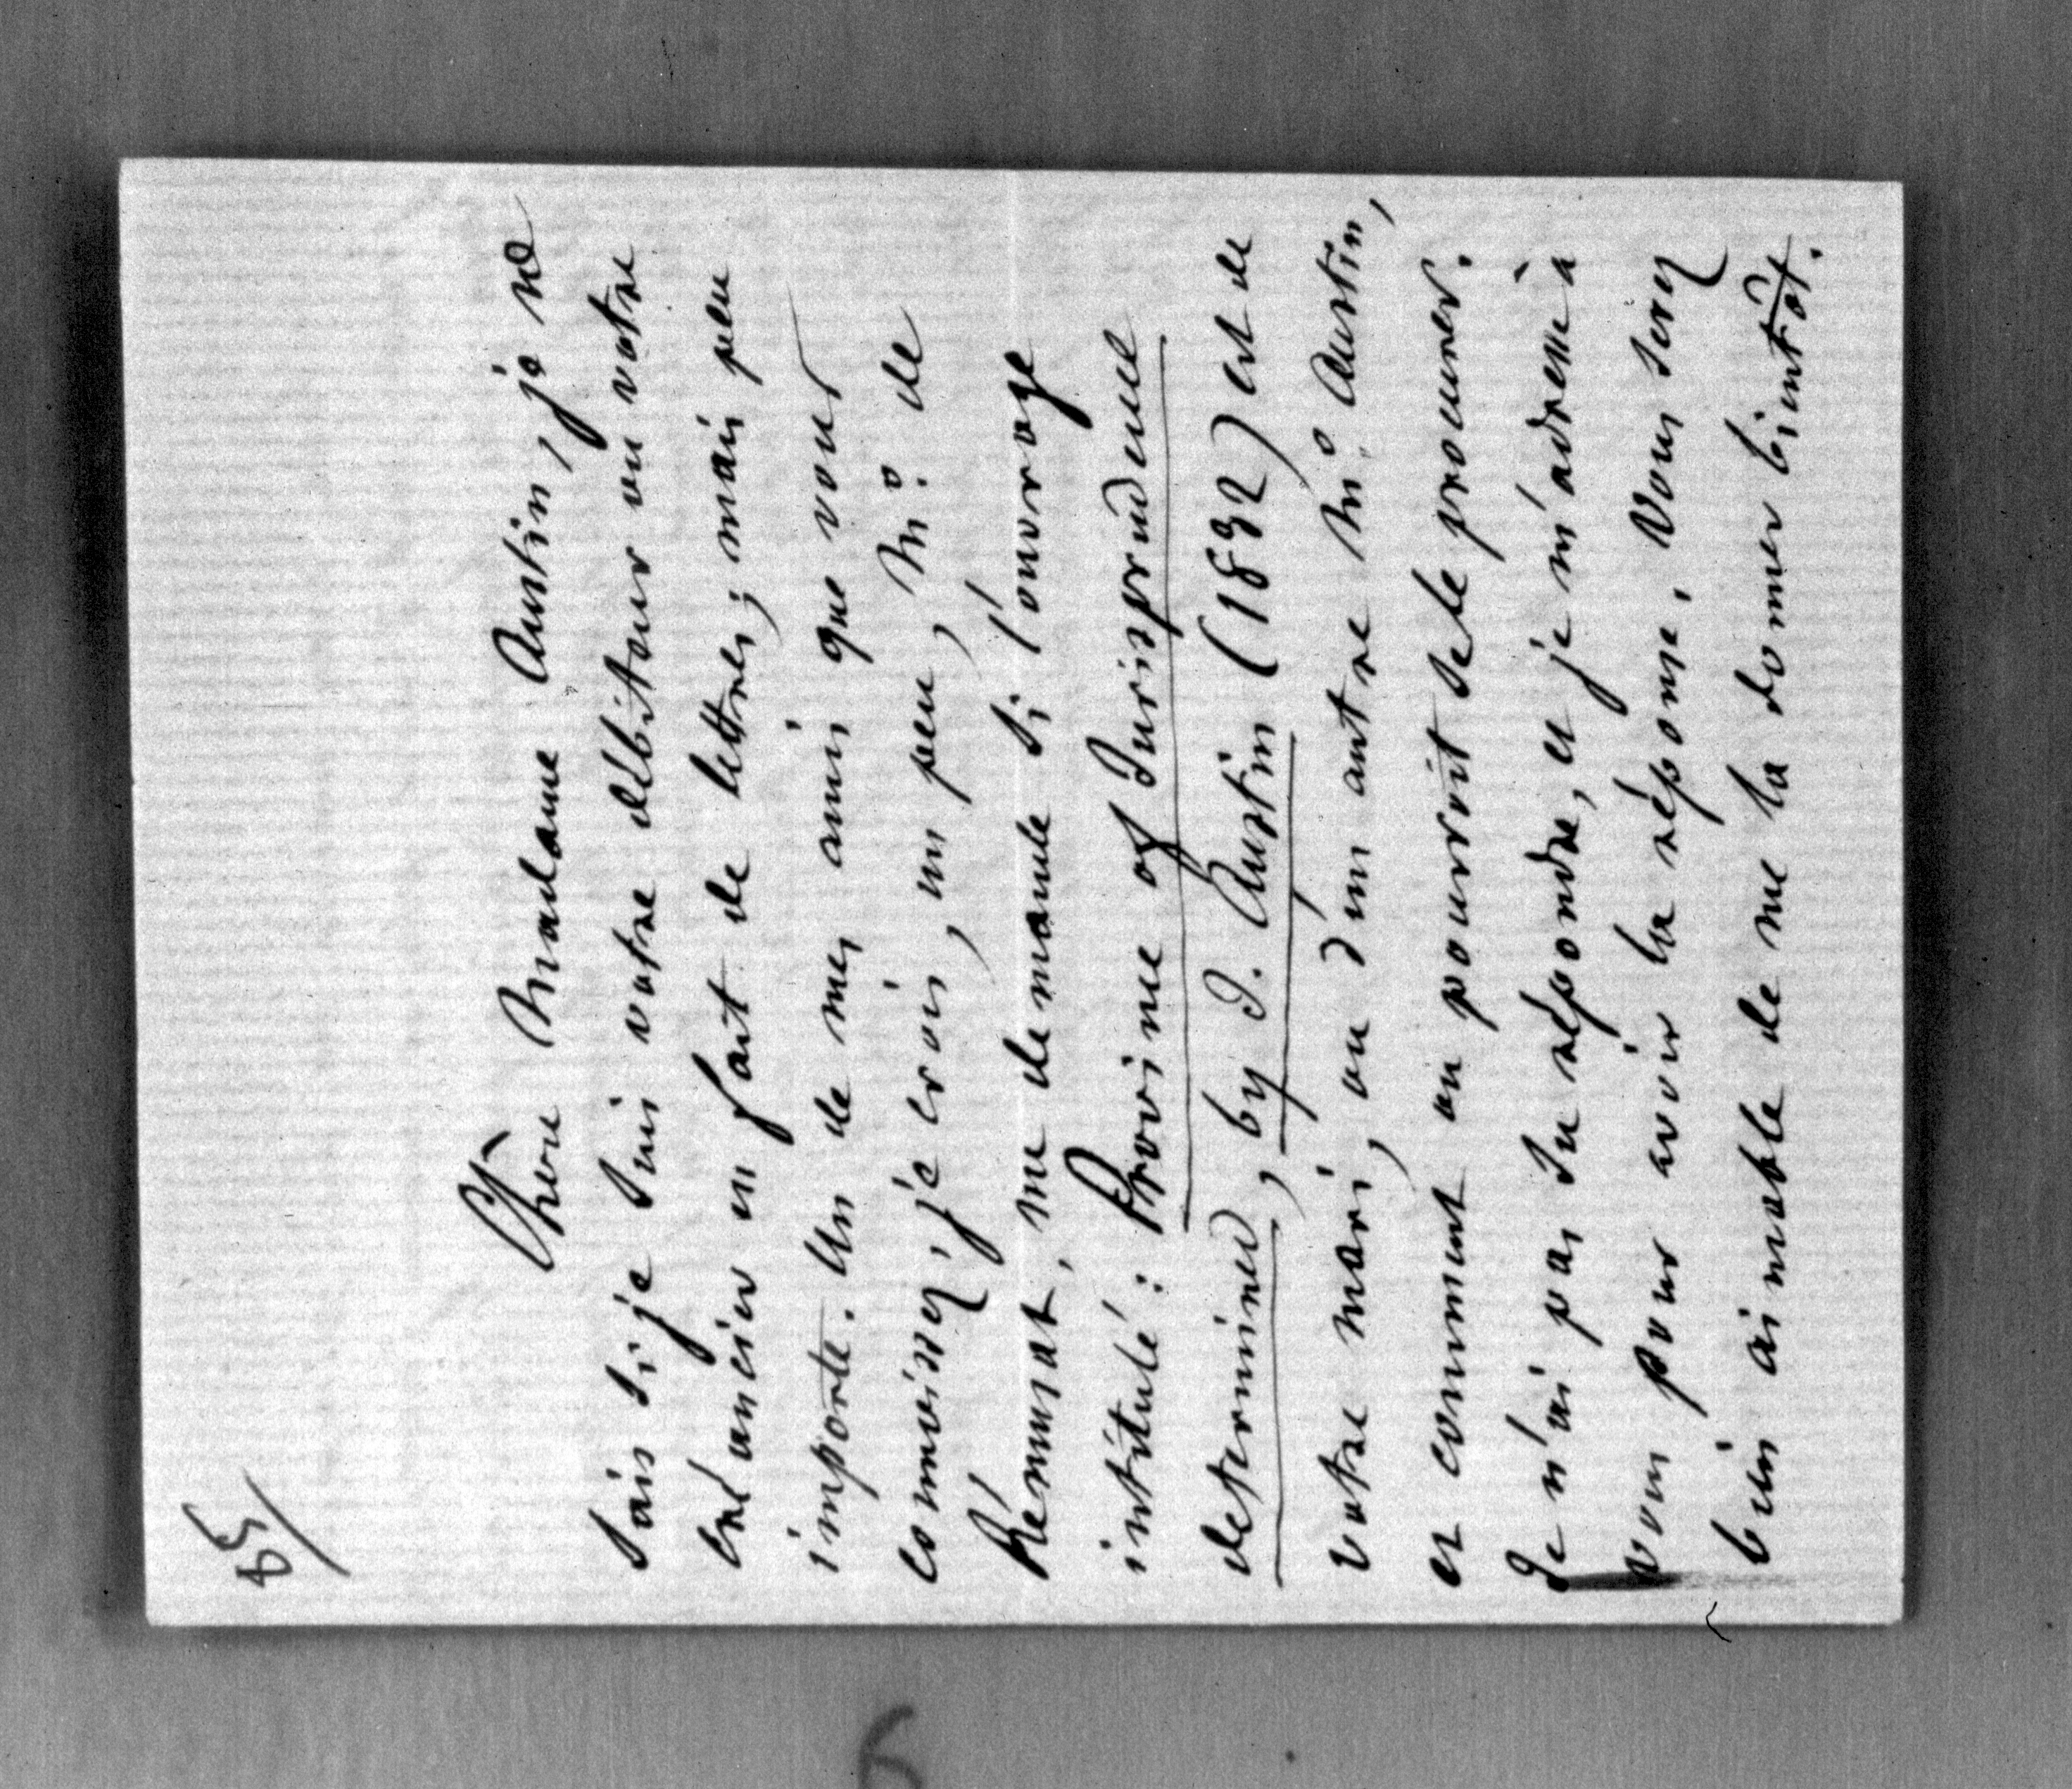 85/
Chère Madame Austin, je ne
sais si je suis votre débiteur ou votre
créancier en fait de lettres; mais peu
importe. Un de mes amis que vous
connoissez, je crois, un peu, Mr. de
Rémusat, me demande si l'ouvrage
intitulé: Province of Jurisprudence
determined, by J. Austin (1832) est de
votre mari, ou d'un autre Mr. Austin,
et comment on pourroit se le procurer.
Je n'ai pas su répondre, et je m'adresse à
vous pour avoir la réponse. Vous serez
bien aimable de me la donner bientôt.